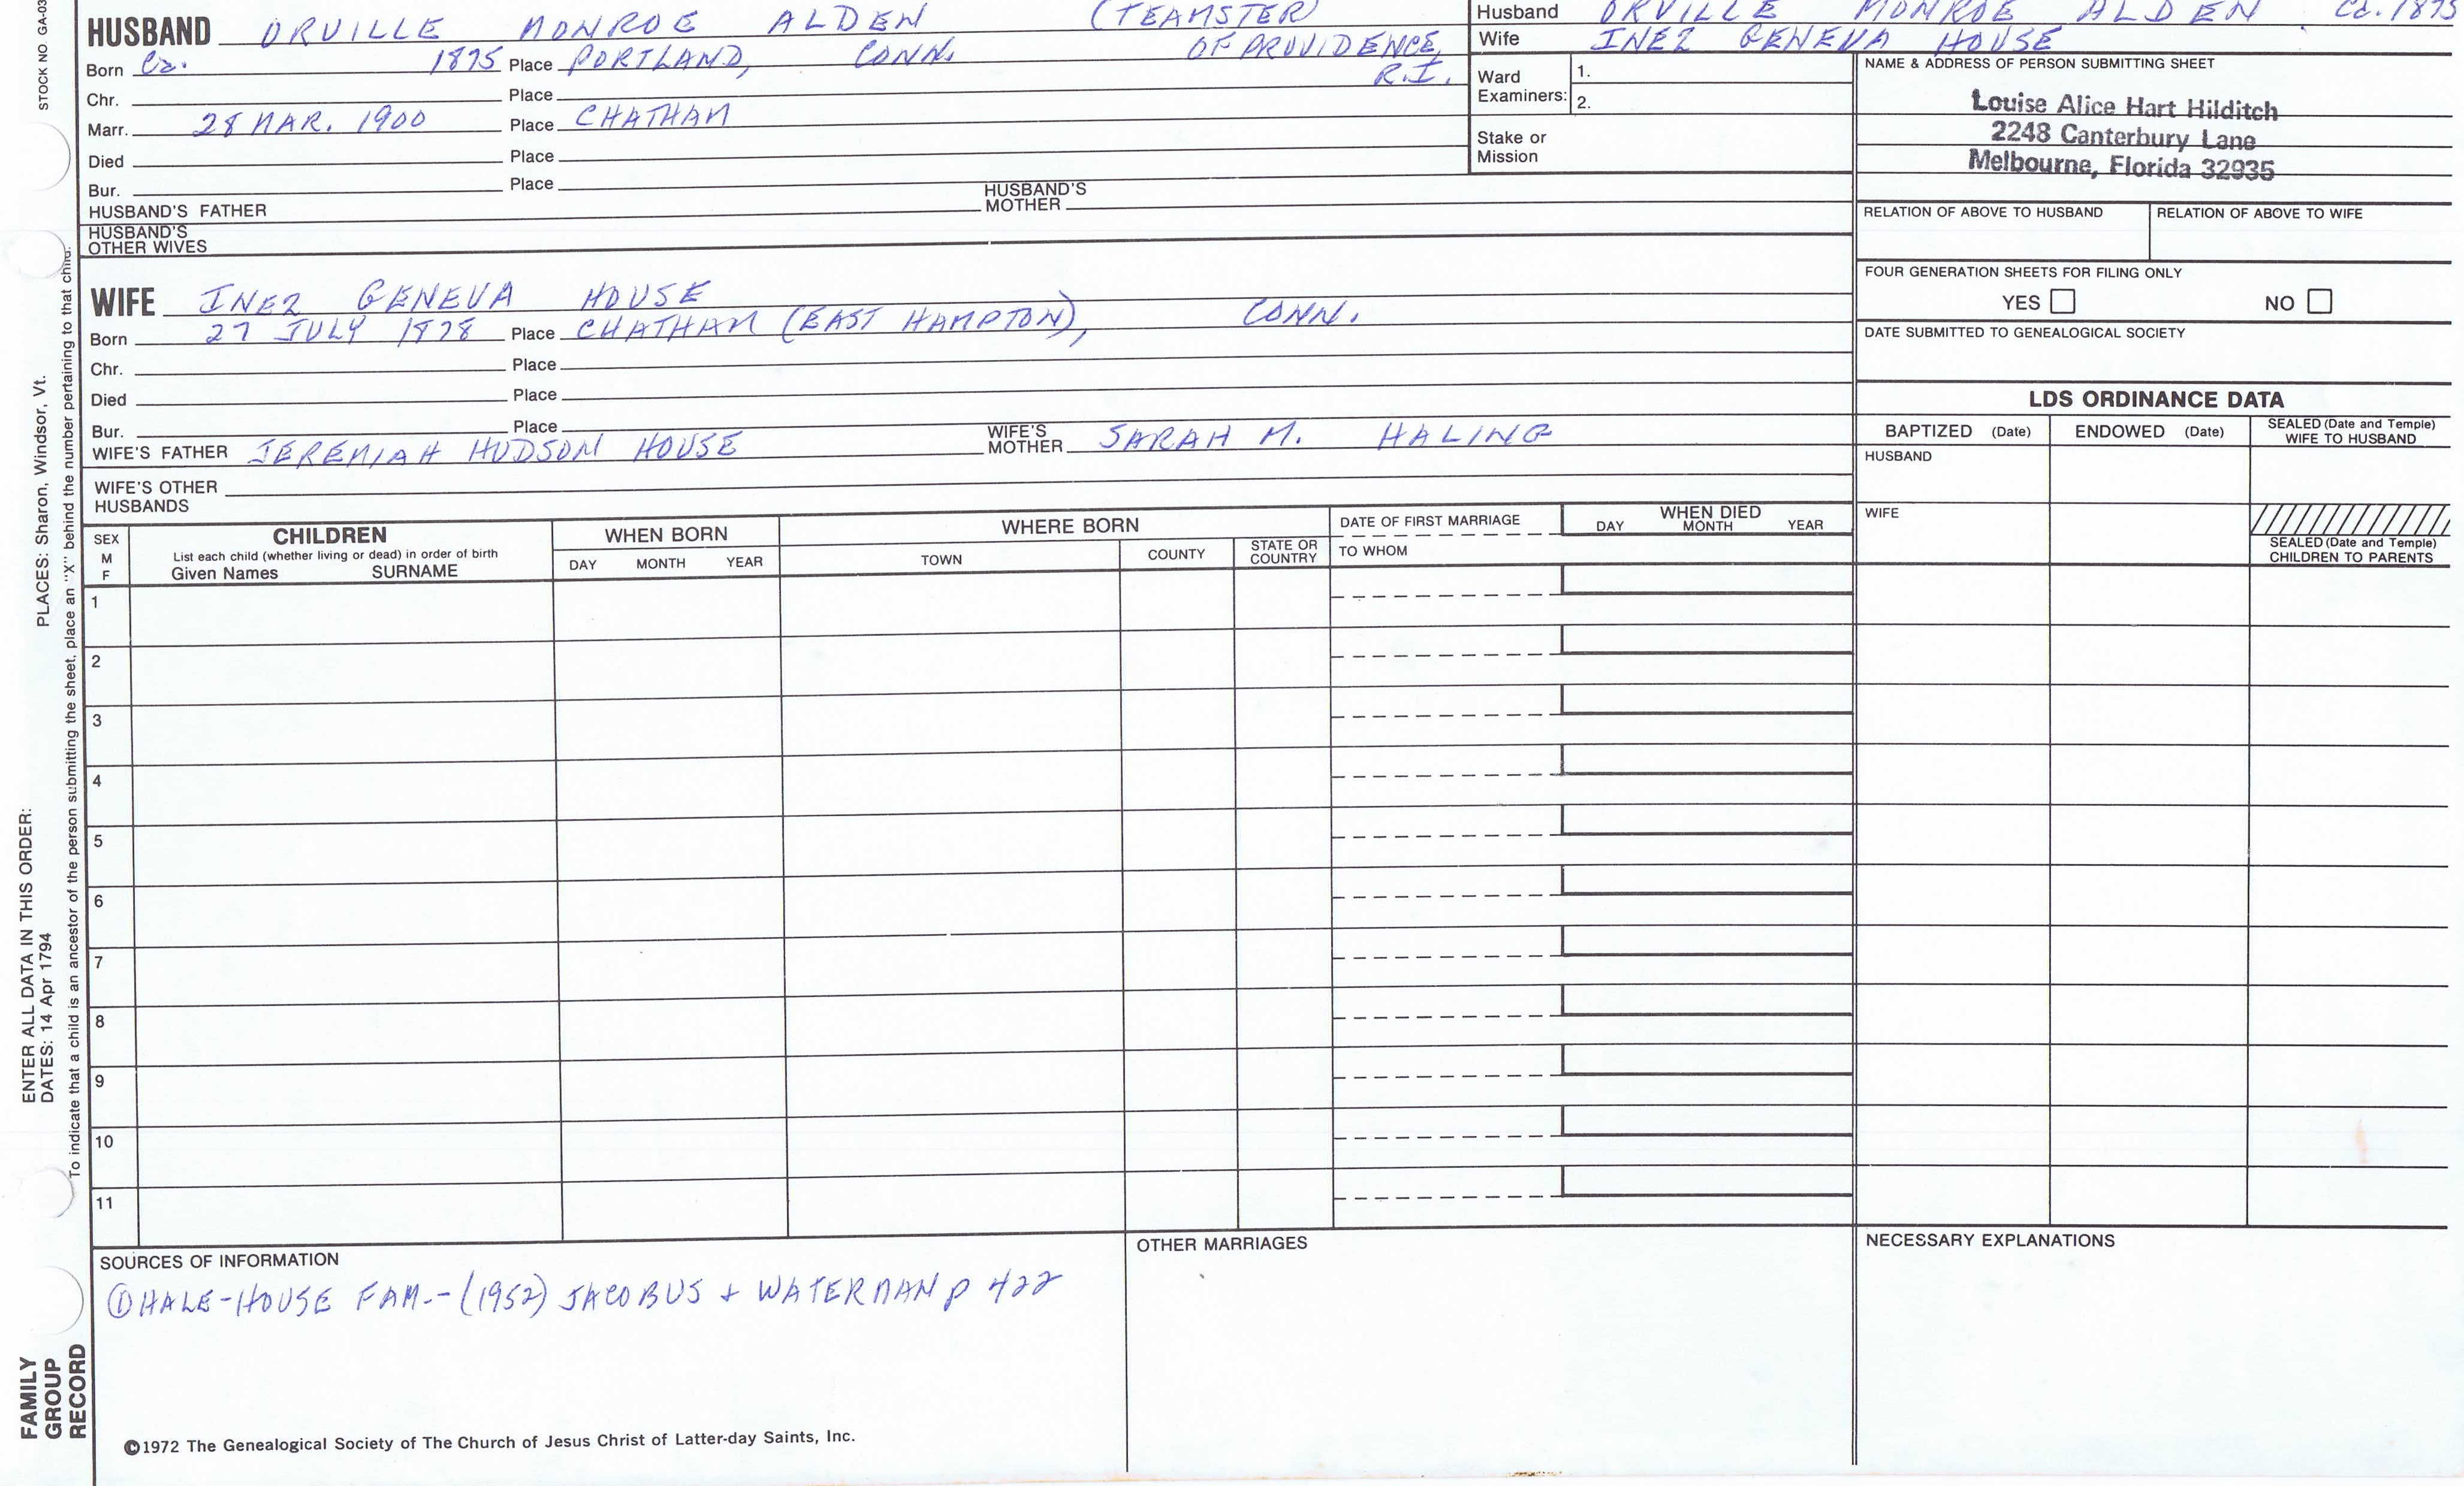 STOCK NO GA-03
HUSBAND ORVILLE MONROE ALDEN (TEAMSTER)
Born Ca. 1875 Place PORTLAND, CONN. OF PROVIDENCE, R.I.
Chr. Place
Marr. 28 MAR. 1900 Place CHATHAM
Died Place
Bur. Place
HUSBAND'S FATHER HUSBAND'S MOTHER
HUSBAND'S OTHER WIVES
Husband ORVILLE MONROE ALDEN Ca. 1875
Wife INEZ GENEVA HOUSE
Ward Examiners: 1.
2.
Stake or Mission
NAME & ADDRESS OF PERSON SUBMITTING SHEET
Louise Alice Hart Hilditch
2248 Canterbury Lane
Melbourne, Florida 32935
RELATION OF ABOVE TO HUSBAND RELATION OF ABOVE TO WIFE
FOUR GENERATION SHEETS FOR FILING ONLY
YES NO
DATE SUBMITTED TO GENEALOGICAL SOCIETY
WIFE INEZ GENEVA HOUSE
Born 27 JULY 1878 Place CHATHAM (EAST HAMPTON), CONN.
Chr. Place
Died Place
Bur. Place
WIFE'S FATHER JEREMIAH HUDSON HOUSE WIFE'S MOTHER SARAH M. HALING
WIFE'S OTHER HUSBANDS
LDS ORDINANCE DATA
BAPTIZED (Date) ENDOWED (Date) SEALED (Date and Temple) WIFE TO HUSBAND
HUSBAND
WIFE
SEALED (Date and Temple) CHILDREN TO PARENTS
SEX M F
CHILDREN
List each child (whether living or dead) in order of birth
Given Names SURNAME
WHEN BORN
DAY MONTH YEAR
WHERE BORN
TOWN COUNTY STATE OR COUNTRY
DATE OF FIRST MARRIAGE
TO WHOM
WHEN DIED
DAY MONTH YEAR
1
2
3
4
5
6
7
8
9
10
11
SOURCES OF INFORMATION
① HALE-HOUSE FAM.-(1952) JACOBUS + WATERMAN p 422
OTHER MARRIAGES
NECESSARY EXPLANATIONS
©1972 The Genealogical Society of The Church of Jesus Christ of Latter-day Saints, Inc.
ENTER ALL DATA IN THIS ORDER:
DATES: 14 Apr 1794 PLACES: Sharon, Windsor, Vt.
To indicate that a child is an ancestor of the person submitting the sheet, place an "X" behind the number pertaining to that child.
FAMILY
GROUP
RECORD